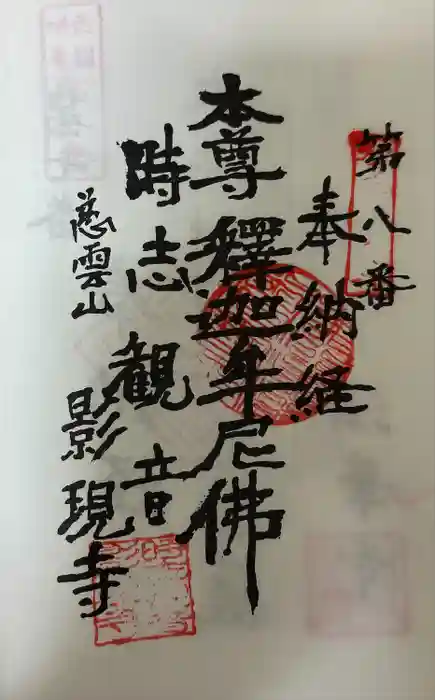 第八番
奉納経
本尊釋迦牟尼佛
時志觀音
慈雲山
影現寺